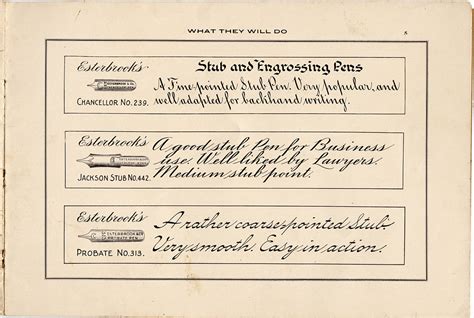 WHAT THEY WILL DO
Esterbrook's
Stub and Engrossing Pens
A Fine pointed Stub Pen. Very popular, and
well adapted for backhand writing.
CHANCELLOR NO. 239.
Esterbrook's
A good stub Pen for Business
use. Well liked by Lawyers.
Medium stub point.
JACKSON STUB NO. 442.
Esterbrook's
A rather coarse-pointed Stub
Very smooth. Easy in action.
ESTERBROOK & CO
PROBATE PEN
PROBATE NO. 313.